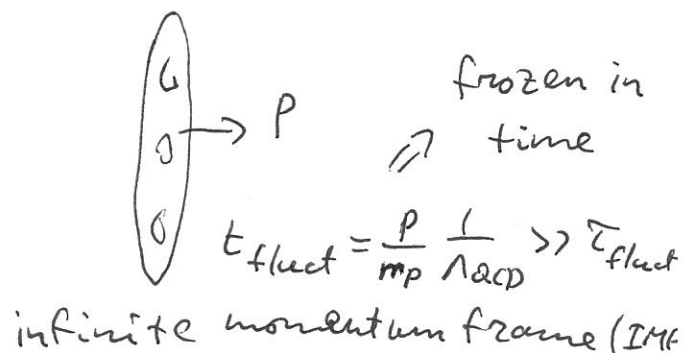 frozen in
time
→ p
t_fluct = p/m_p 1/Λ_QCD >> τ_fluct
infinite momentum frame (IMF